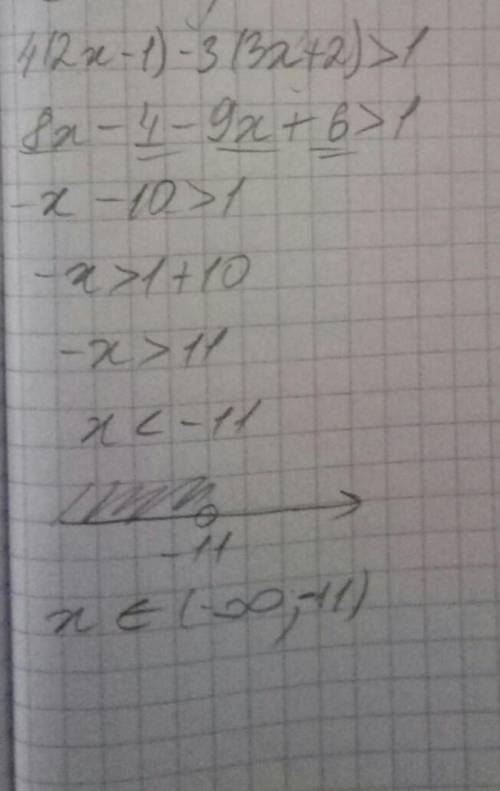 4(2x-1)-3(3x+2)>1
8x-4-9x+6>1
-x-10>1
-x>1+10
-x>11
x<-11
-11
x∈(-∞,-11)